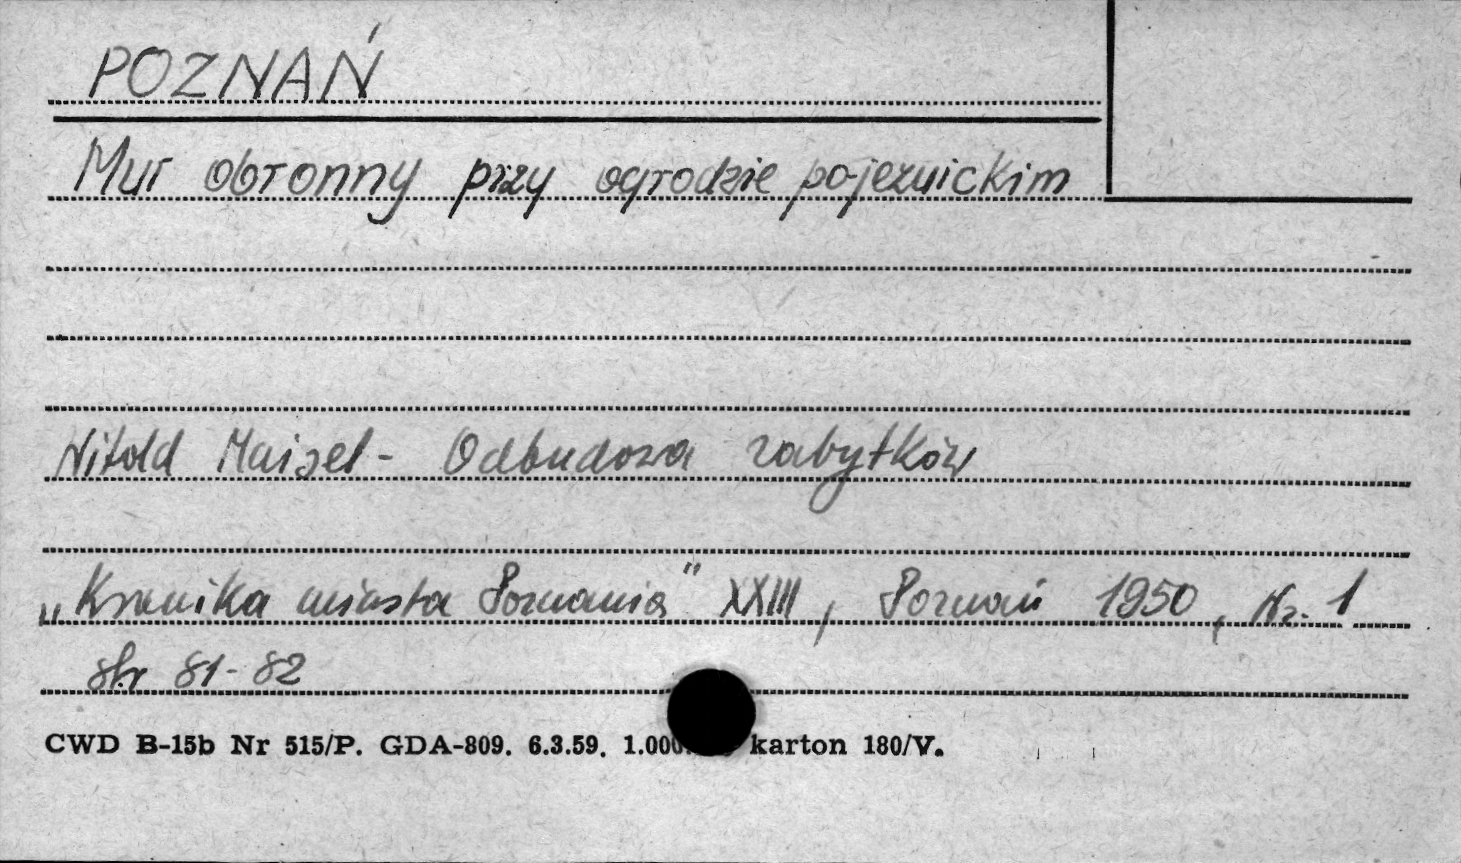 POZNAŃ
Mur obronny przy ogrodzie pojezuickim
Witold Maisel - Odbudowa zabytków
„Kronika miasta Poznania" XXIII, Poznań 1950, Nr. 1
str 81-82
CWD B-15b Nr 515/P. GDA-809. 6.3.59. 1.000 karton 180/V.